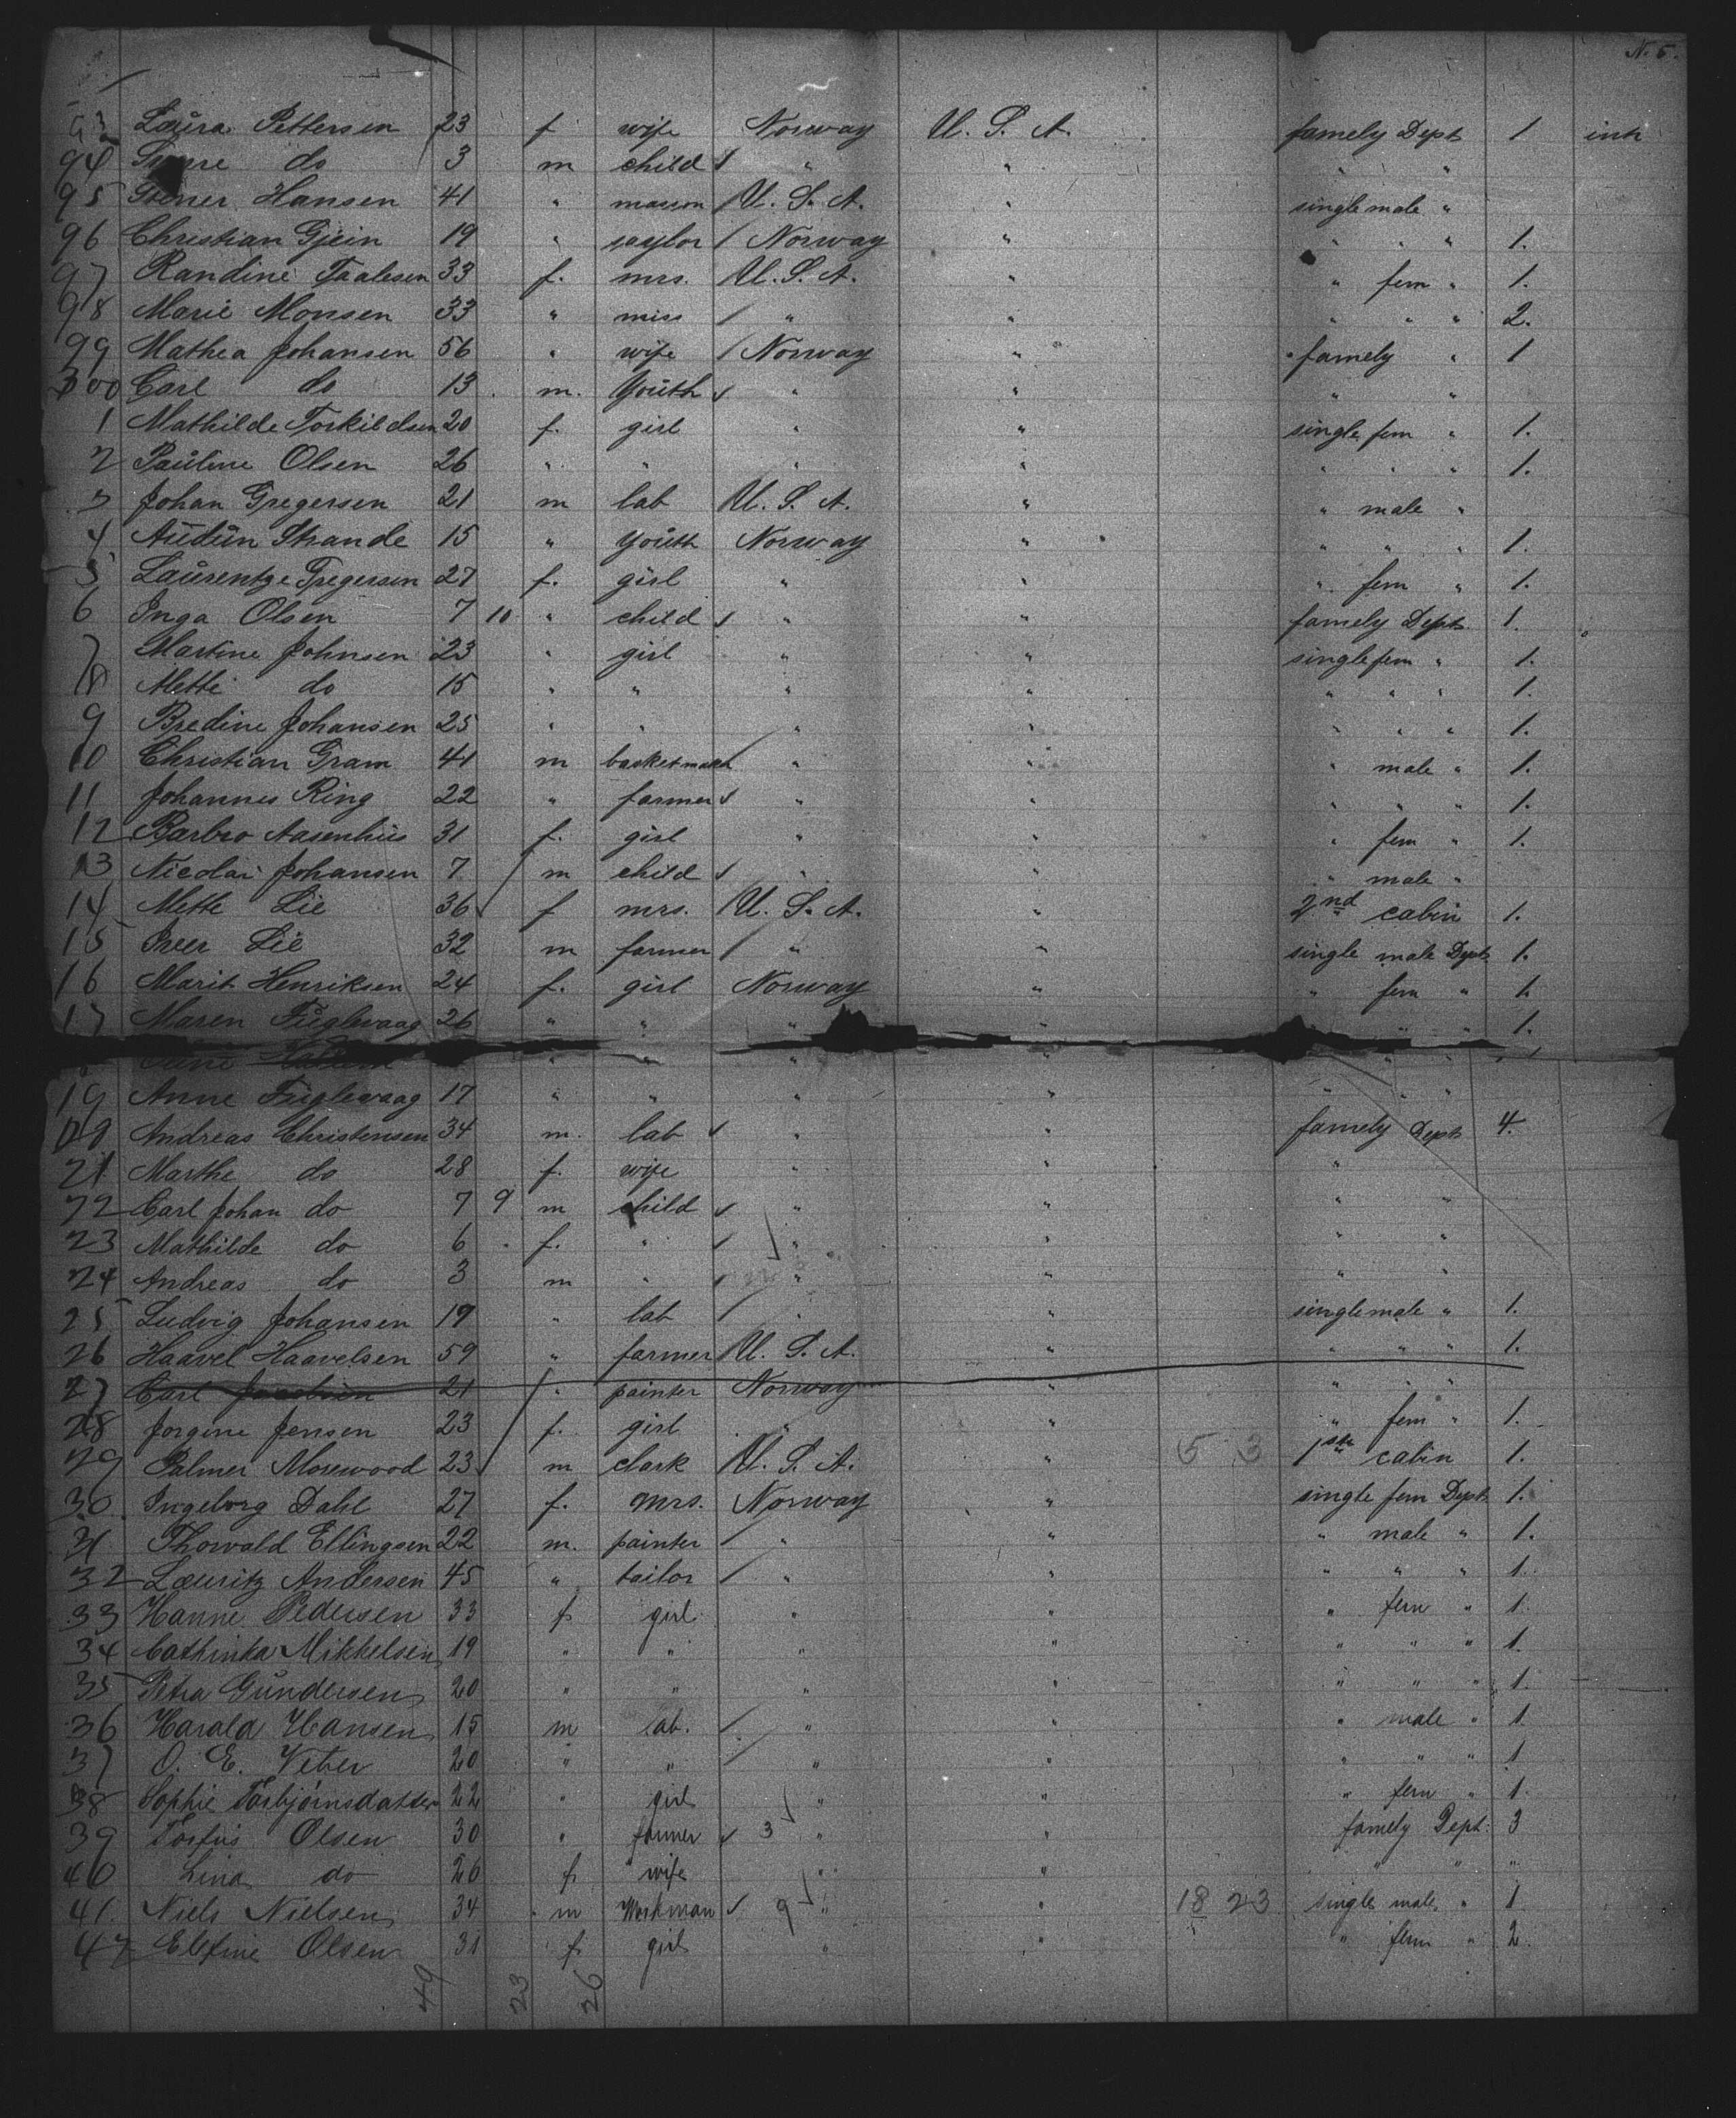 N. 5.
93 Laura Pettersen 23 f wife Norway U. S. A. famely Dept 1 inh
94 do 3 m child " " " "
95 Hansen 41 " mason U. S. A. " single male "
96 Christian Gjein 19 " saylor Norway " " " " 1.
97 Randine Taalesen 33 f. mrs. U. S. A. " " fem " 1.
98 Marie Monsen 33 " miss " " " " " 2.
99 Mathea Johansen 56 " wife Norway " famely " 1
300 Carl do 13 m. Youth " " " "
1 Mathilde Torkildsen 20 f. girl " " single fem " 1.
2 Pauline Olsen 26 " " " " " " " 1.
3 Johan Gregersen 21 m lab U. S. A. " " male "
4 Audun Strande 15 " youth Norway " " " " 1.
5 Laurentze Gregersen 27 f. girl " " " fem " 1.
6 Inga Olsen 7 10 " child " " famely Dept 1. "
7 Martine Johnsen 23 " girl " " single fem " 1.
8 Mette do 15 " " " " " " " 1.
9 Bredine Johansen 25 " " " " " " " 1.
10 Christian Gram 41 m basketmaker " " " male " 1.
11 Johannes Ring 22 " farmer " " " " " 1.
12 Barbro Aasenhus 31 f. girl " " " fem " 1.
13 Nicolai Johansen 7 m child " " " male "
14 Mette Lie 36 f mrs. U. S. A. " 2nd cabin 1.
15 Peer Lie 32 m farmer " " single male Dept 1.
16 Marit Henriksen 24 f. girl Norway " " fem " 1.
17 Maren Fuglevaag 26 " " " " " " " 1.
" " " " " " "
19 Anne Fuglevaag 17 " " " " " " "
20 Andreas Christensen 34 m. lab " " famely Dept 4.
21 Marthe do 28 f. wife " " "
22 Carl Johan do 7 9 m child " " " "
23 Mathilde do 6 f. " " " " "
24 Andreas do 3 m " " " " "
25 Ludvig Johansen 19 " lab " " single male " 1.
26 Haavel Haavelsen 59 " farmer U. S. A. " " " " 1.
27 Carl Jacobsen 21 " painter Norway " " " "
28 Jorgine Jensen 23 f. girl " " " fem " 1.
29 Palmer Morewood 23 m clark U. S. A. " 5 3 1st cabin 1.
30 Ingeborg Dahl 27 f. mrs. Norway " single fem Dept 1.
31 Thorvald Ellingsen 22 m. painter " " " male " 1.
32 Lauritz Andersen 45 " tailor " " " " " 1.
33 Hanne Pedersen 33 f girl " " " fem " 1.
34 Cathinka Mikkelsen 19 " " " " " " " 1.
35 Petra Gundersen 20 " " " " " " " 1.
36 Harald Hansen 15 m lab. " " " male " 1.
37 O. E. Veber 20 " " " " " " " 1
38 Sophie Torbjørnsdatter 22 " girl " " " fem " 1.
39 Olsen 30 " farmer 3 " " famely Dept: 3
40 Lina do 26 f wife " " " " "
41. Niels Nielsen 34 m Workman 9 " " 18 23 single male " 1
42 Elefine Olsen 31 f girl " " " fem " 2.
49 23 26